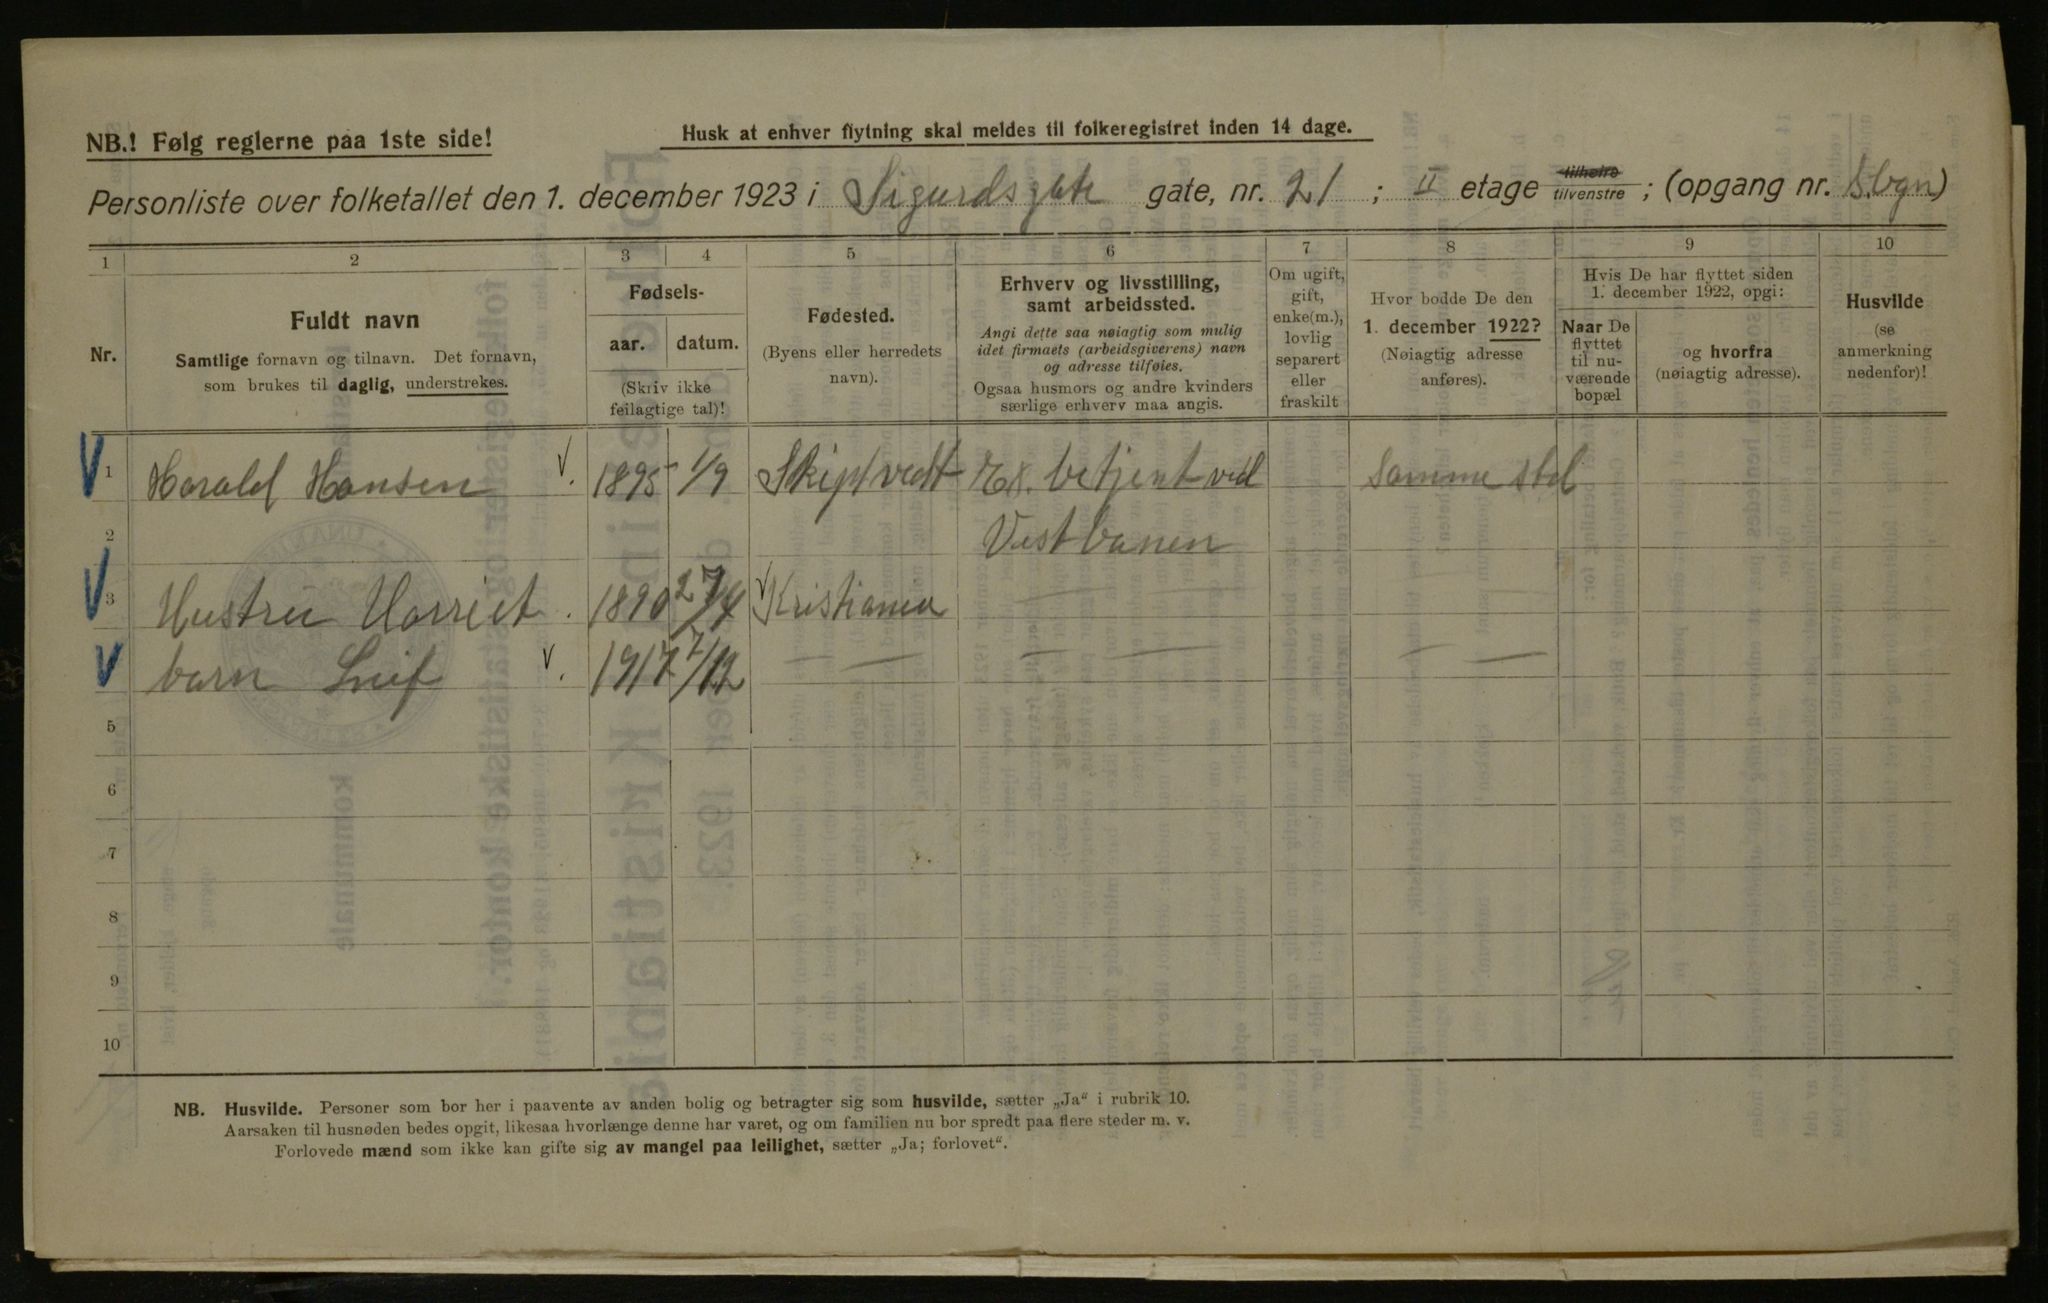 NB.! Følg reglerne paa 1ste side!
Husk at enhver flytning skal meldes til folkeregistret inden 14 dage.
Personliste over folketallet den 1. december 1923 i Sigurdsgate gate, nr. 21 ; II etage tilhøire tilvenstre ; (opgang nr. S.bgn)
1 2 3 4 5 6 7 8 9 10
Nr.
Fuldt navn
Samtlige fornavn og tilnavn. Det fornavn,
som brukes til daglig, understrekes.
Fødsels-
aar. datum.
(Skriv ikke
feilagtige tal)!
Fødested.
(Byens eller herredets
navn).
Erhverv og livsstilling,
samt arbeidssted.
Angi dette saa nøiagtig som mulig
idet firmaets (arbeidsgiverens) navn
og adresse tilføies.
Ogsaa husmors og andre kvinders
særlige erhverv maa angis.
Om ugift,
gift,
enke(m.),
lovlig
separert
eller
fraskilt
Hvor bodde De den
1. december 1922?
(Nøiagtig adresse
anføres).
Hvis De har flyttet siden
1. december 1922, opgi:
Naar De
flyttet
til nu-
værende
bopæl
og hvorfra
(nøiagtig adresse).
Husvilde
(se
anmerkning
nedenfor)!
V 1 Harald Hansen V. 1895 1/9 Skiptvedt Ex. betjent ved Samme sted
2 Vestbanen
V 3 Hustru Harriet . 1890 27/4 V Kristiania — — — —
V barn Leif V. 1917 7/12 — — — — — —
5
6
7
8
9
10
NB. Husvilde. Personer som bor her i paavente av anden bolig og betragter sig som husvilde, sætter „Ja“ i rubrik 10.
Aarsaken til husnøden bedes opgit, likesaa hvorlænge denne har varet, og om familien nu bor spredt paa flere steder m. v.
Forlovede mænd som ikke kan gifte sig av mangel paa leilighet, sætter „Ja; forlovet“.